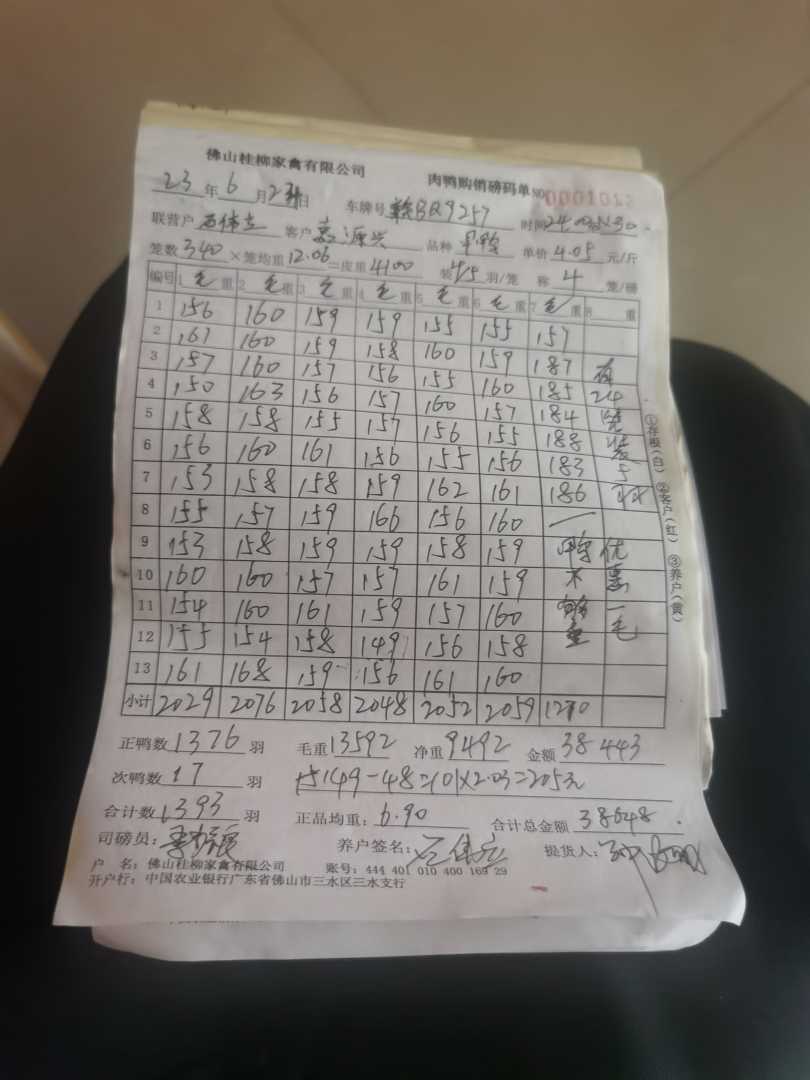 佛山桂柳家禽有限公司 肉鸭购销磅码单 NO 0001012
23年6月23日 车牌号 赣BQ9257 时间
联营户 客户 嘉源兴 品种 单价 4.05 元/斤
笼数 340 ×笼均重 12.06 =皮重 4100 装 4/5 羽/笼 称 4 笼/磅
编号 1 毛重 2 毛重 3 毛重 4 毛重 5 毛重 6 毛重 7 毛重 8 重
1 156 160 159 159 155 155 157
2 161 160 159 158 160 159 187 有
3 157 160 157 156 155 160 185 24
4 150 163 156 157 160 157 184 笼
5 158 158 155 157 156 155 188 装
6 156 160 161 156 155 156 183 5
7 153 158 158 159 162 161 186 羽
8 155 157 159 166 156 160 —
9 153 158 159 159 158 159 鸭 优
10 160 160 157 157 161 159 不 惠
11 154 160 161 159 157 160 够 一
12 155 154 158 149 156 158 重 毛
13 161 168 159 156 161 160
小计 2029 2076 2058 2048 2052 2059 1270
①存根(白) ②客户(红) ③养户(黄)
正鸭数 1376 羽 毛重 13592 净重 9492 金额 38443
次鸭数 17 羽 149-48=101×2.03=205元
合计数 1393 羽 正品均重: 6.90 合计总金额 38648.
司磅员: 养户签名: 提货人:
户 名: 佛山桂柳家禽有限公司 账号: 444 401 010 400 169 29
开户行: 中国农业银行广东省佛山市三水区三水支行